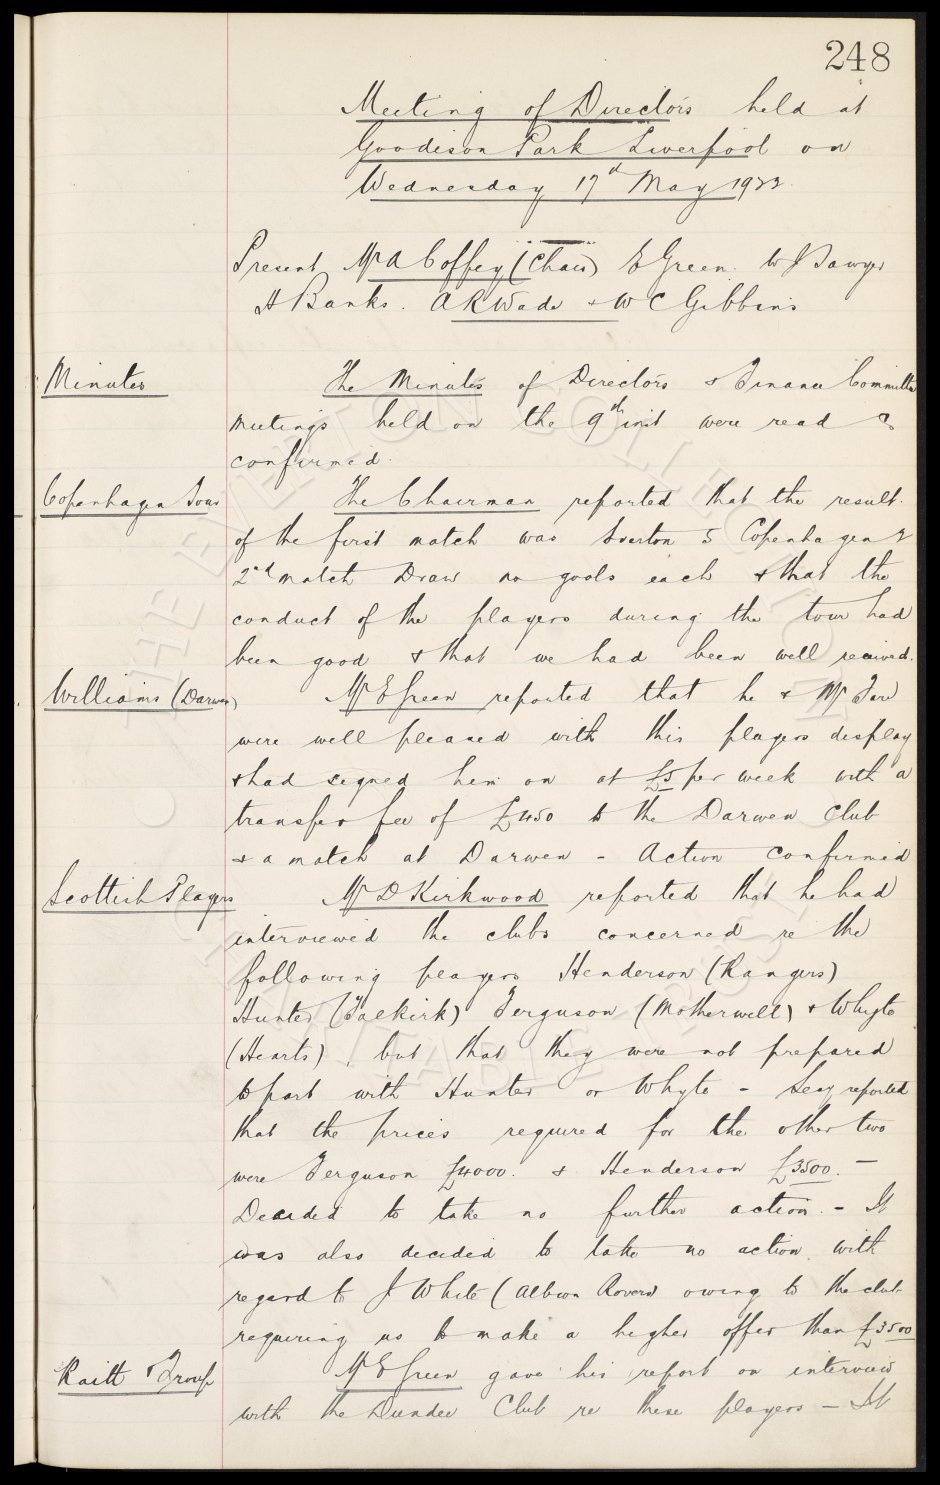 248
Meeting of Directors held at
Goodison Park Liverpool on
Wednesday 17th May 1922.
Present Mr A Coffey (Chair) E Green. W J Sawyer
H Banks. A R Wade & W C Gibbins
Minutes
The Minutes of Directors & Finance Committee
meetings held on the 9th inst were read &
confirmed.
Copenhagen Tour
The Chairman reported that the result
of the first match was Everton 5 Copenhagen 2
2nd match Draw no goals each & that the
conduct of the players during the tour had
been good & that we had been well received.
Williams (Darwen)
Mr E Green reported that he & Mr
were well pleased with this players display
& had signed him on at £5 per week with a
transfer fee of £450 to the Darwen Club
& a match at Darwen - Action confirmed
Scottish Players
Mr D Kirkwood reported that he had
interviewed the clubs concerned re the
following players Henderson (Rangers)
Hunter (Falkirk) Ferguson (Motherwell) & Whyte
(Hearts), but that they were not prepared
to part with Hunter or Whyte - Secy reported
that the prices required for the other two
were Ferguson £4000. & Henderson £3500. -
Decided to take no further action. - It
was also decided to take no action with
regard to J White (Albion Rovers) owing to the club
requiring us to make a higher offer than £3500
Raitt & Troup
Mr E Green gave his report on interview
with the Dundee Club re these players - It
THE EVERTON COLLECTION
CHARITABLE TRUST